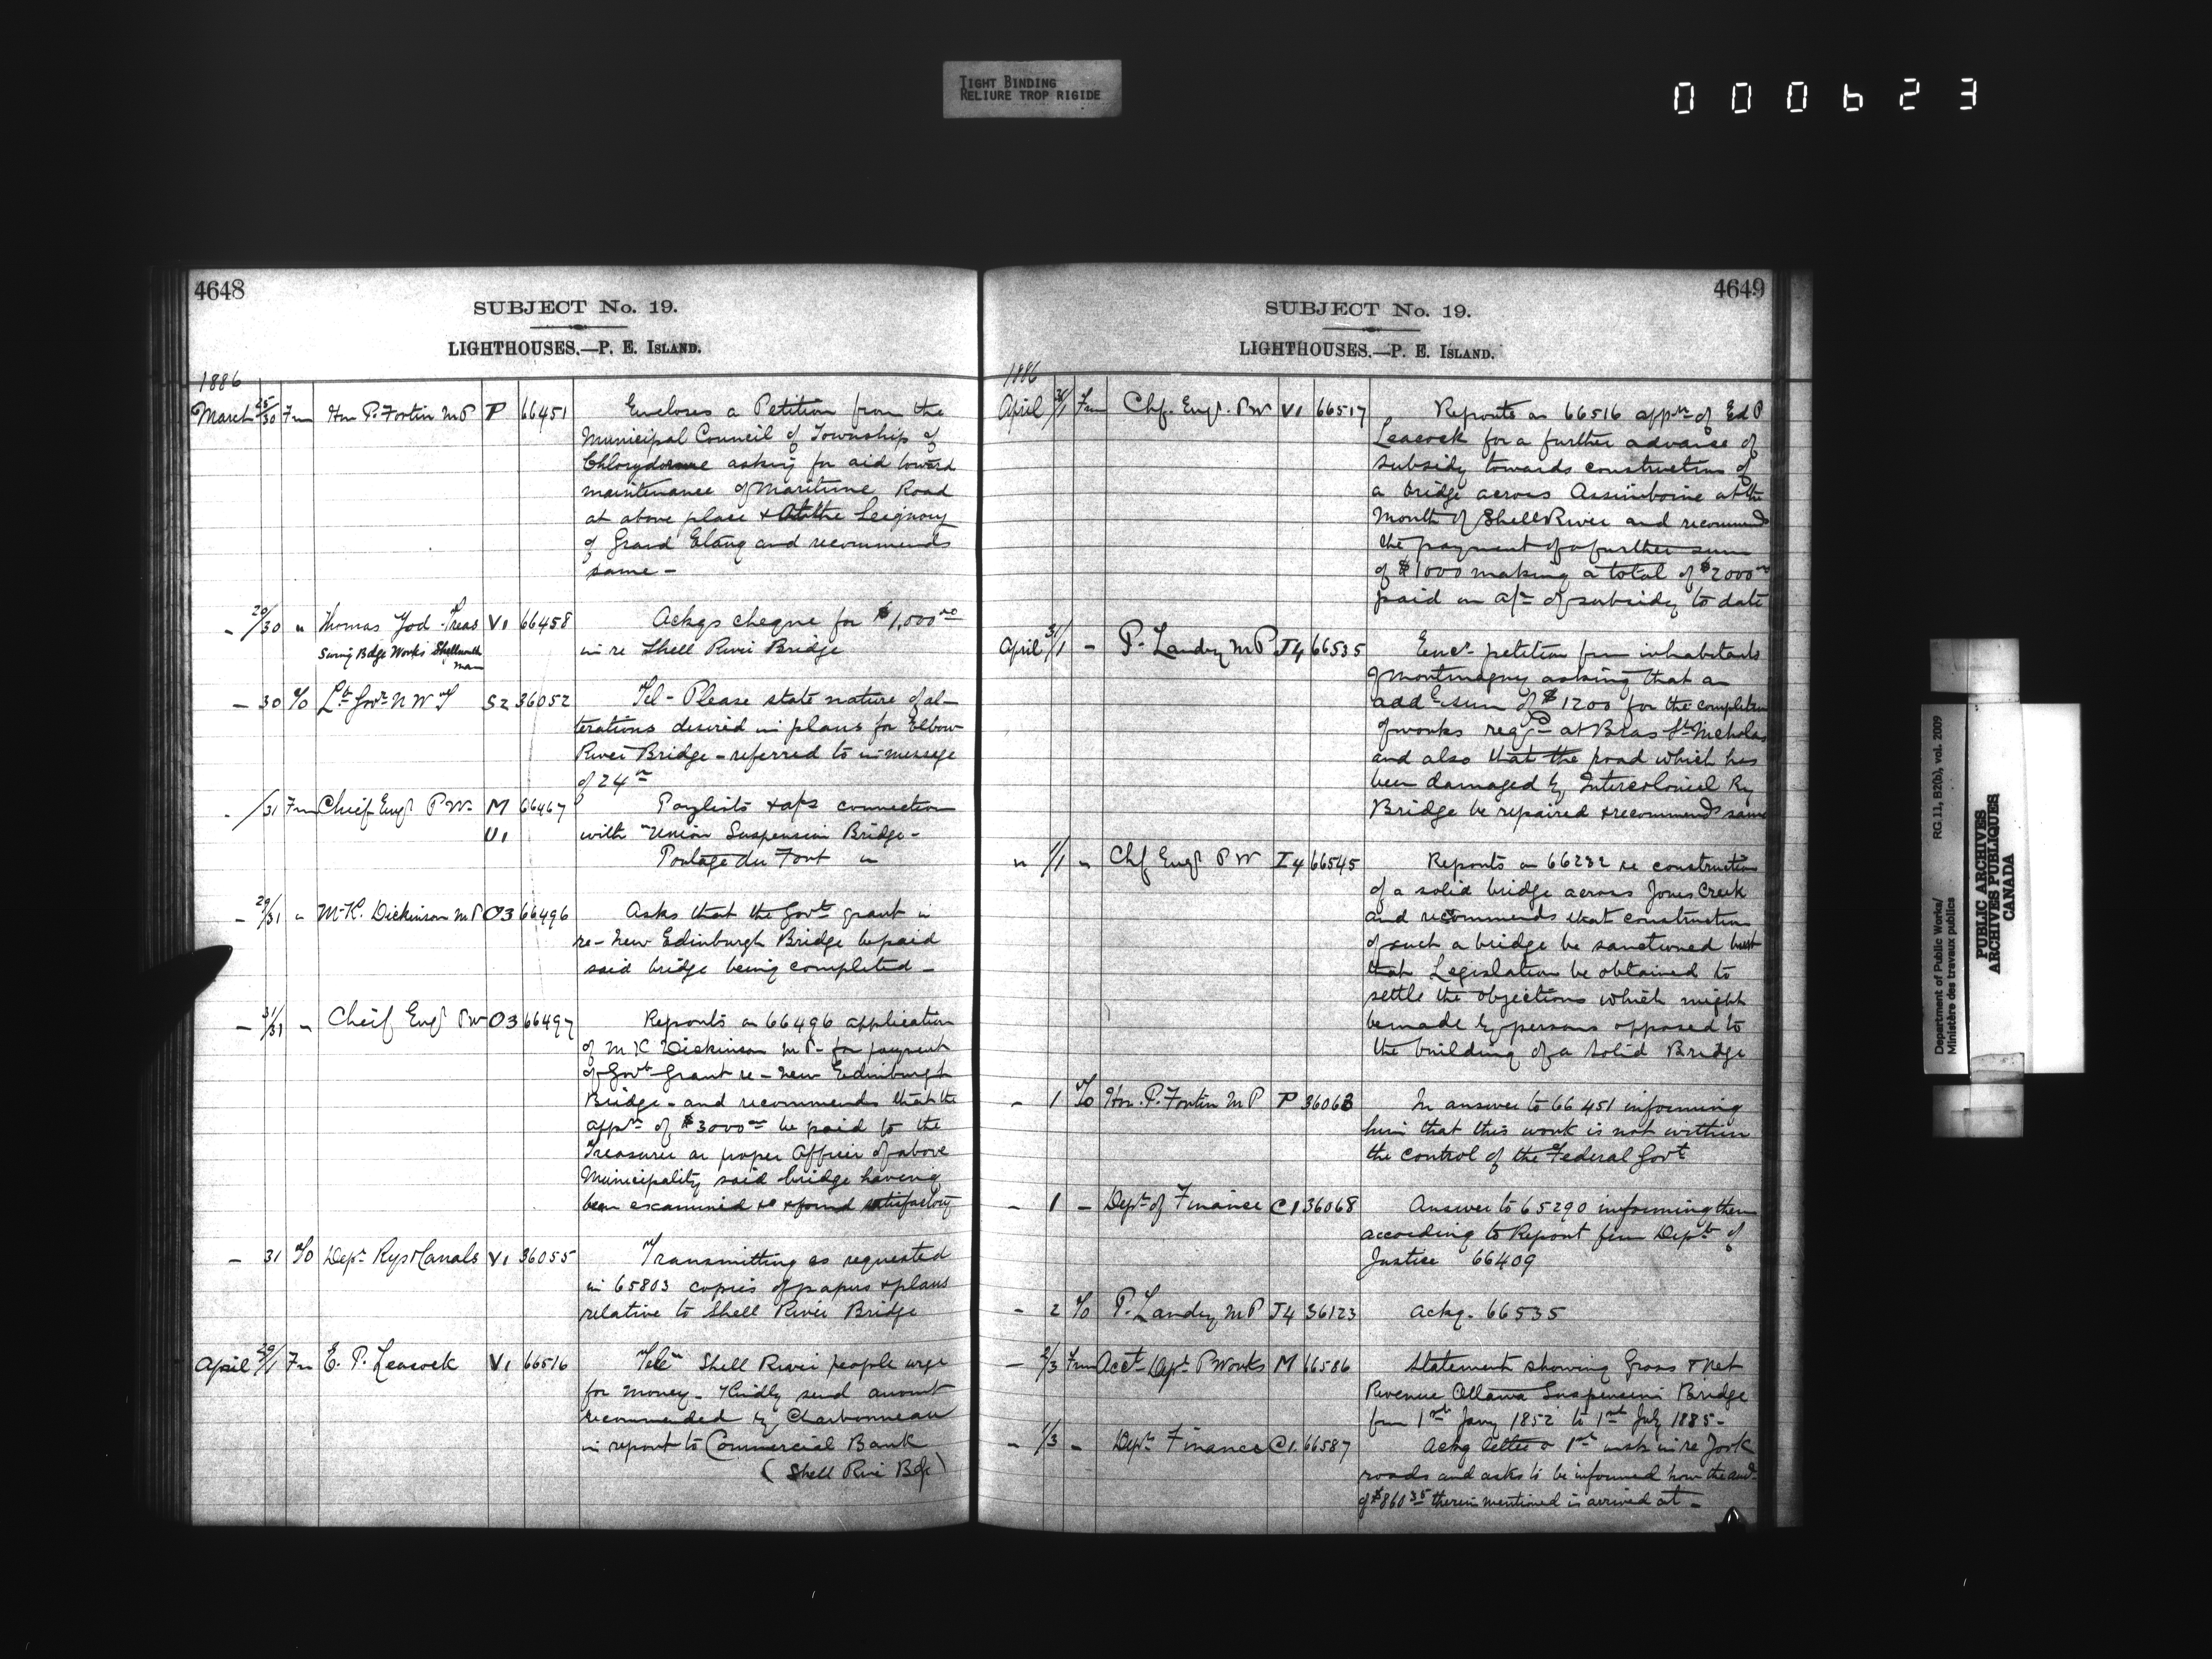 TIGHT BINDING
RELIURE TROP RIGIDE
000623
4648
SUBJECT No. 19.
LIGHTHOUSES.—P. E. ISLAND.
1886
March 25/30 Fm Hon P. Fortin MP P 66451 Encloses a Petition from the
Municipal Council of Township of
Chlorydorme asking for aid toward
maintenance of Maritime Road
at above place & At the Seignory
of Grand Etang and recommends
same -
- 20/30 " Thomas Yod Treas V1 66458 Ackgs cheque for $1,000 00
Swing Bdge Works Shellmouth
Man
in re Shell River Bridge
- 30 To Lt Govr N W T S2 36052 Tel - Please state nature of al-
terations desired in plans for Elbow
River Bridge - referred to in message
of 24th
- /31 Fm Chief Engr P W. M 66467 Paylists & a/cs connection
V1
with "Union Suspension Bridge -
Portage du Fort "
- 29/31 " M K. Dickinson MP O3 66496 Asks that the Govt grant in
re - New Edinburgh Bridge be paid
said bridge being completed -
- 31/31 " Cheif Engr PW O3 66497 Reports on 66496 application
of M K Dickinson MP - for payment
of Govt Grant re - New Edinburgh
Bridge - and recommends that the
appn of $3000 00 be paid to the
Treasurer or proper Officer of above
Municipality said bridge having
been examined & found satisfactory
- 31 To Dept Rys & Canals V1 36055 Transmitting as requested
in 65803 copies of papers & plans
relative to Shell River Bridge
April 29/1 Fm E. P. Leacock V1 66516 Tele Shell River people urge
for money - Kindly send amount
recommended by Charbonneau
in report to Commercial Bank
(Shell Rive Bdge)
4649
SUBJECT No. 19.
LIGHTHOUSES.—P. E. ISLAND.
1886
April 31/1 Fm Chf. Engr. PW V1 66517 Reports on 66516 appn of Ed P
Leacock for a further advance of
subsidy towards construction of
a bridge across Assiniboine at the
Mouth of Shell River and recommends
the payment of a further sum
of $1000 making a total of $2000 00
paid on a/c of subsidy to date
April 31/1 - P. Landry MP J4 66535 Encs petition from inhabitants
of Montmagny asking that an
addl sum of $1200 for the completion
of works reqd at Bras St Nicholas
and also that the road which has
been damaged by Intercolonial Ry
Bridge be repaired & recommends same
" 1/1 " Chf Engr PW I4 66545 Reports on 66232 re construction
of a solid bridge across Jones Creek
and recommends that construction
of such a bridge be sanctioned but
that Legislation be obtained to
settle the objections which might
be made by persons opposed to
the building of a solid Bridge
- 1 To Hon. P. Fortin MP P 36063 In answer to 66451 informing
him that this work is not within
the control of the Federal Govt
- 1 - Dept of Finance C1 36068 Answer to 65290 informing them
according to Report from Dept of
Justice 66409
- 2 To P. Landry MP J4 36123 Ackg. 66535
- 2/3 From Acct Dept P Works M 66586 Statement showing Gross & Net
Revenue Ottawa Suspension Bridge
from 1st Jany 1852 to 1st July 1885 -
- 1/3 - Dept Finance C1. 66587 Ackg letter of 1st inst in re York
roads and asks to be informed how the
of $860 35 therein mentioned is arrived at -
Department of Public Works/
Ministère des travaux publics
RG 11, B2(b), vol. 2009
PUBLIC ARCHIVES
ARCHIVES PUBLIQUES
CANADA